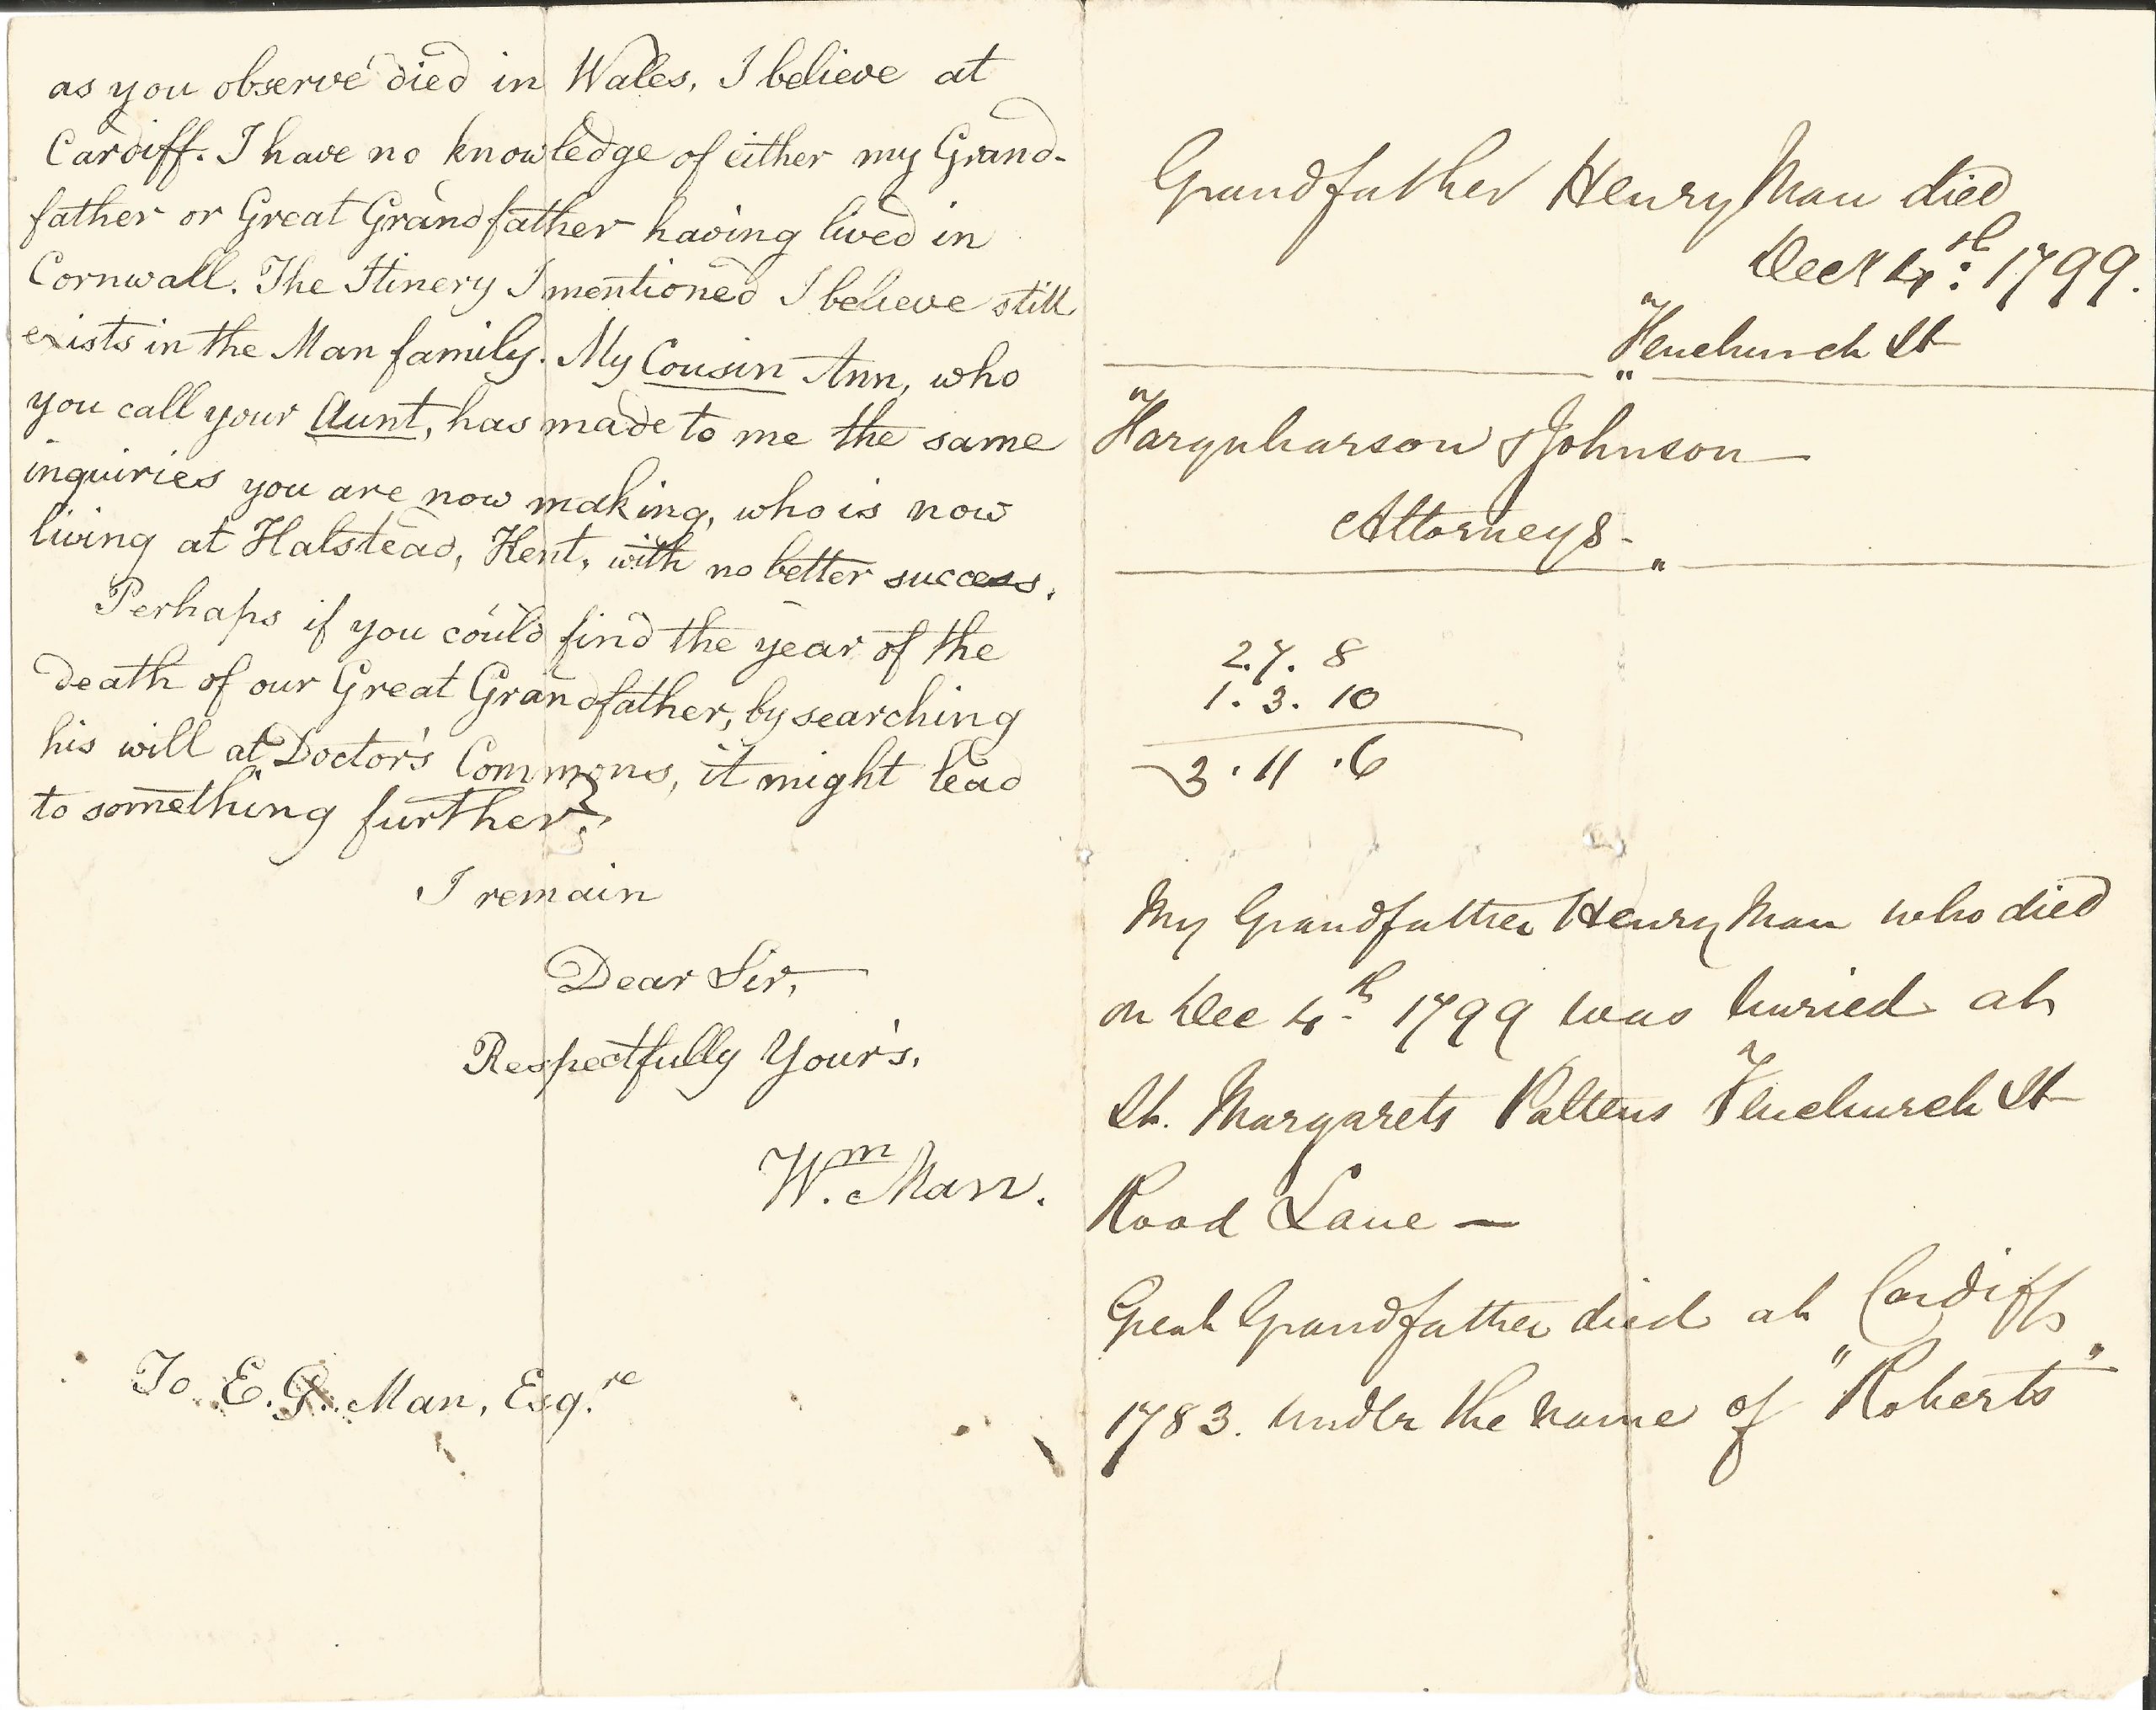 as you observe died in Wales, I believe at
Cardiff. I have no knowledge of either my Grand-
father or Great Grandfather having lived in
Cornwall. The Itinery I mentioned I believe still
exists in the Man family. My Cousin Ann, who
you call your Aunt, has made to me the same
inquiries you are now making, who is now
living at Halstead, Kent, with no better success.
Perhaps if you could find the year of the
death of our Great Grandfather, by searching
his will at Doctor's Commons, it might lead
to something further.
I remain
Dear Sir,
Respectfully Your's,
Wm. Man.
To E. G. Man, Esq.re
Grandfather Henry Man died
Decr 4th: 1799.
Fenchurch St
Farquharson & Johnson
Attorneys -
2.7. 8
1. 3. 10
3. 11 .6
My Grandfather Henry Man who died
on Dec 4th 1799 was buried at
St. Margarets Pattens Fenchurch St
Rood Lane —
Great Grandfather died at Cardiff
1783. under the name of "Roberts"